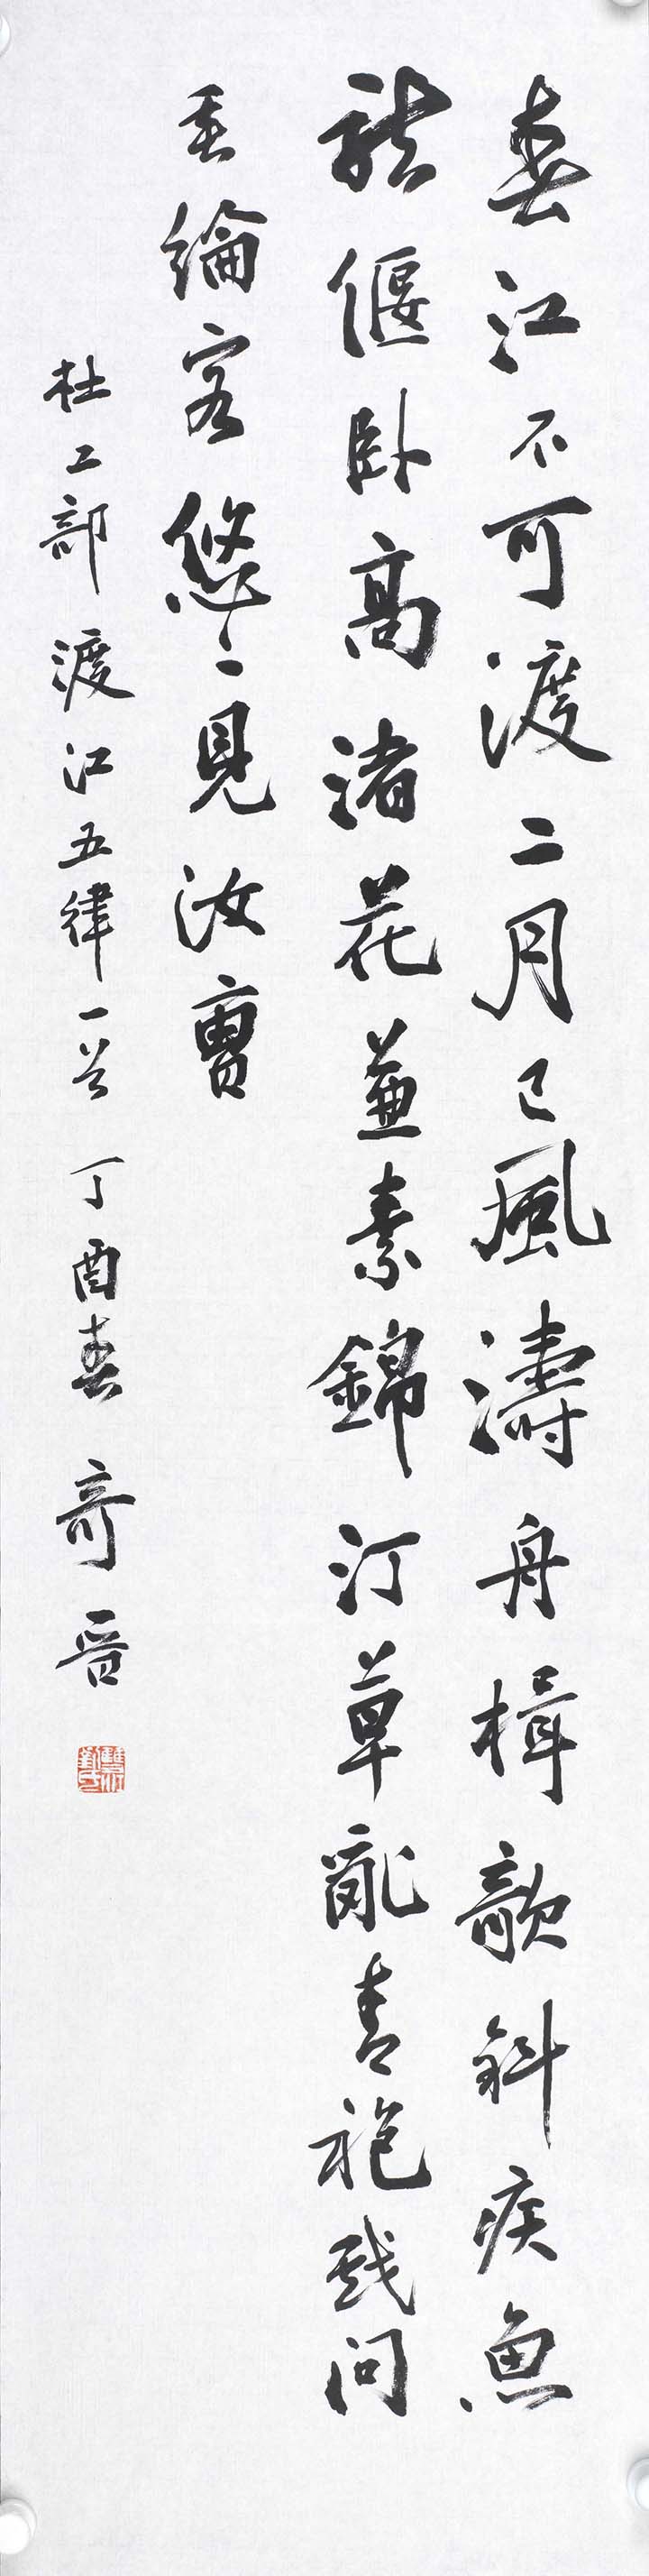 春江不可渡二月已風濤舟楫欹斜疾魚
龍偃卧高渚花兼素錦汀草亂青袍戲問
垂綸客悠〻見汝曹
杜工部渡江五律一首丁酉春奇晋